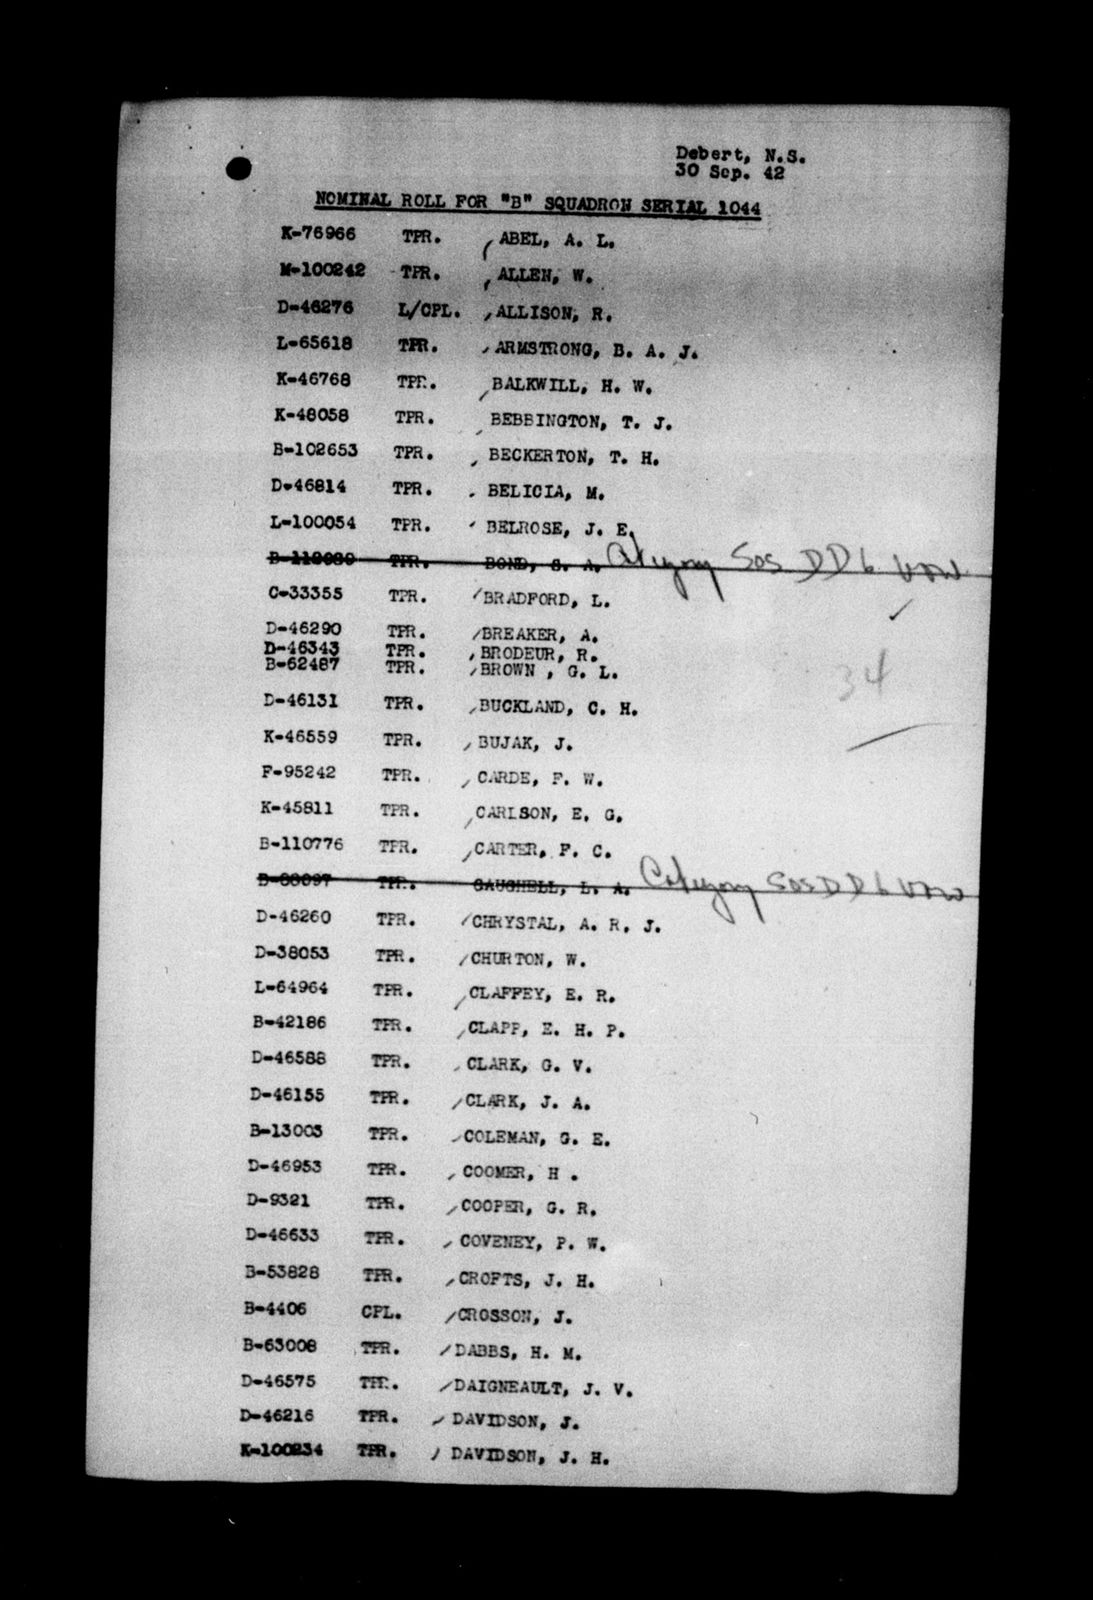 Debert, N.S.
30 Sep. 42
NOMINAL ROLL FOR "B" SQUADRON SERIAL 1044
K-76966 TPR. ABEL, A. L.
M-100242 TPR. ALLEN, W.
D-46276 L/CPL. ALLISON, R.
L-65618 TPR. ARMSTRONG, B. A. J.
K-46768 TPR. BALKWILL, H. W.
K-48058 TPR. BEBBINGTON, T. J.
B-102653 TPR. BECKERTON, T. H.
D-46814 TPR. BELICIA, M.
L-100054 TPR. BELROSE, J. E.
TPR. BOND, S. A. Category SOS DD6
C-33355 TPR. BRADFORD, L.
D-46290 TPR. BREAKER, A.
D-46343 TPR. BRODEUR, R.
B-62487 TPR. BROWN , G. L.
34
D-46131 TPR. BUCKLAND, C. H.
K-46559 TPR. BUJAK, J.
F-95242 TPR. CARDE, F. W.
K-45811 TPR. CARLSON, E. G.
B-110776 TPR. CARTER, F. C.
TPR. L. A. Category SOS DD6
D-46260 TPR. CHRYSTAL, A. R. J.
D-38053 TPR. CHURTON, W.
L-64964 TPR. CLAFFEY, E. R.
B-42186 TPR. CLAPP, E. H. P.
D-46588 TPR. CLARK, G. V.
D-46155 TPR. CLARK, J. A.
B-13003 TPR. COLEMAN, G. E.
D-46953 TPR. COOMER, H .
D-9321 TPR. COOPER, G. R.
D-46633 TPR. COVENEY, P. W.
B-53828 TPR. CROFTS, J. H.
B-4406 CPL. CROSSON, J.
B-63008 TPR. DABBS, H. M.
D-46575 TPR. DAIGNEAULT, J. V.
D-46216 TPR. DAVIDSON, J.
K-100234 TPR. DAVIDSON, J. H.